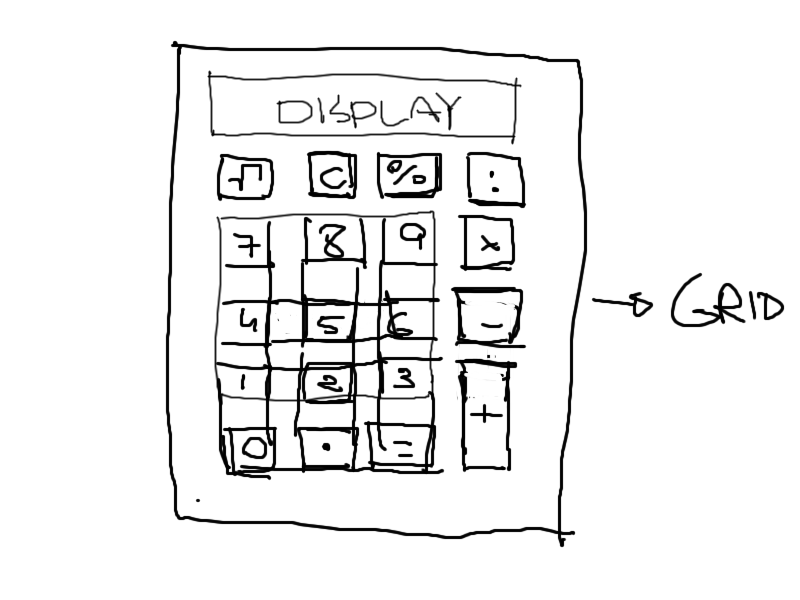 DISPLAY
√ C % :
7 8 9 x
4 5 6 -
1 2 3 +
0 . =
GRID